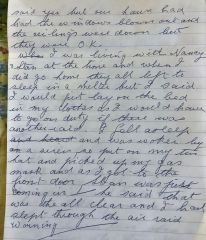 said yes but our house had
had the windows blown out and
the ceilings were down but
they were O.K.
When I was living with Nancy
when at the home and when I
did go home they all left to
sleep in a shelter but I said
I would just lay on the bed
in my clothes as I would have
to go on duty if there was
another raid. I fell asleep
and was woken by
a siren so put on my tin
hat and picked up my gas
mask and as I got to the
front door was just
coming in she said that
was the all clear and I had
slept through the air raid
warning